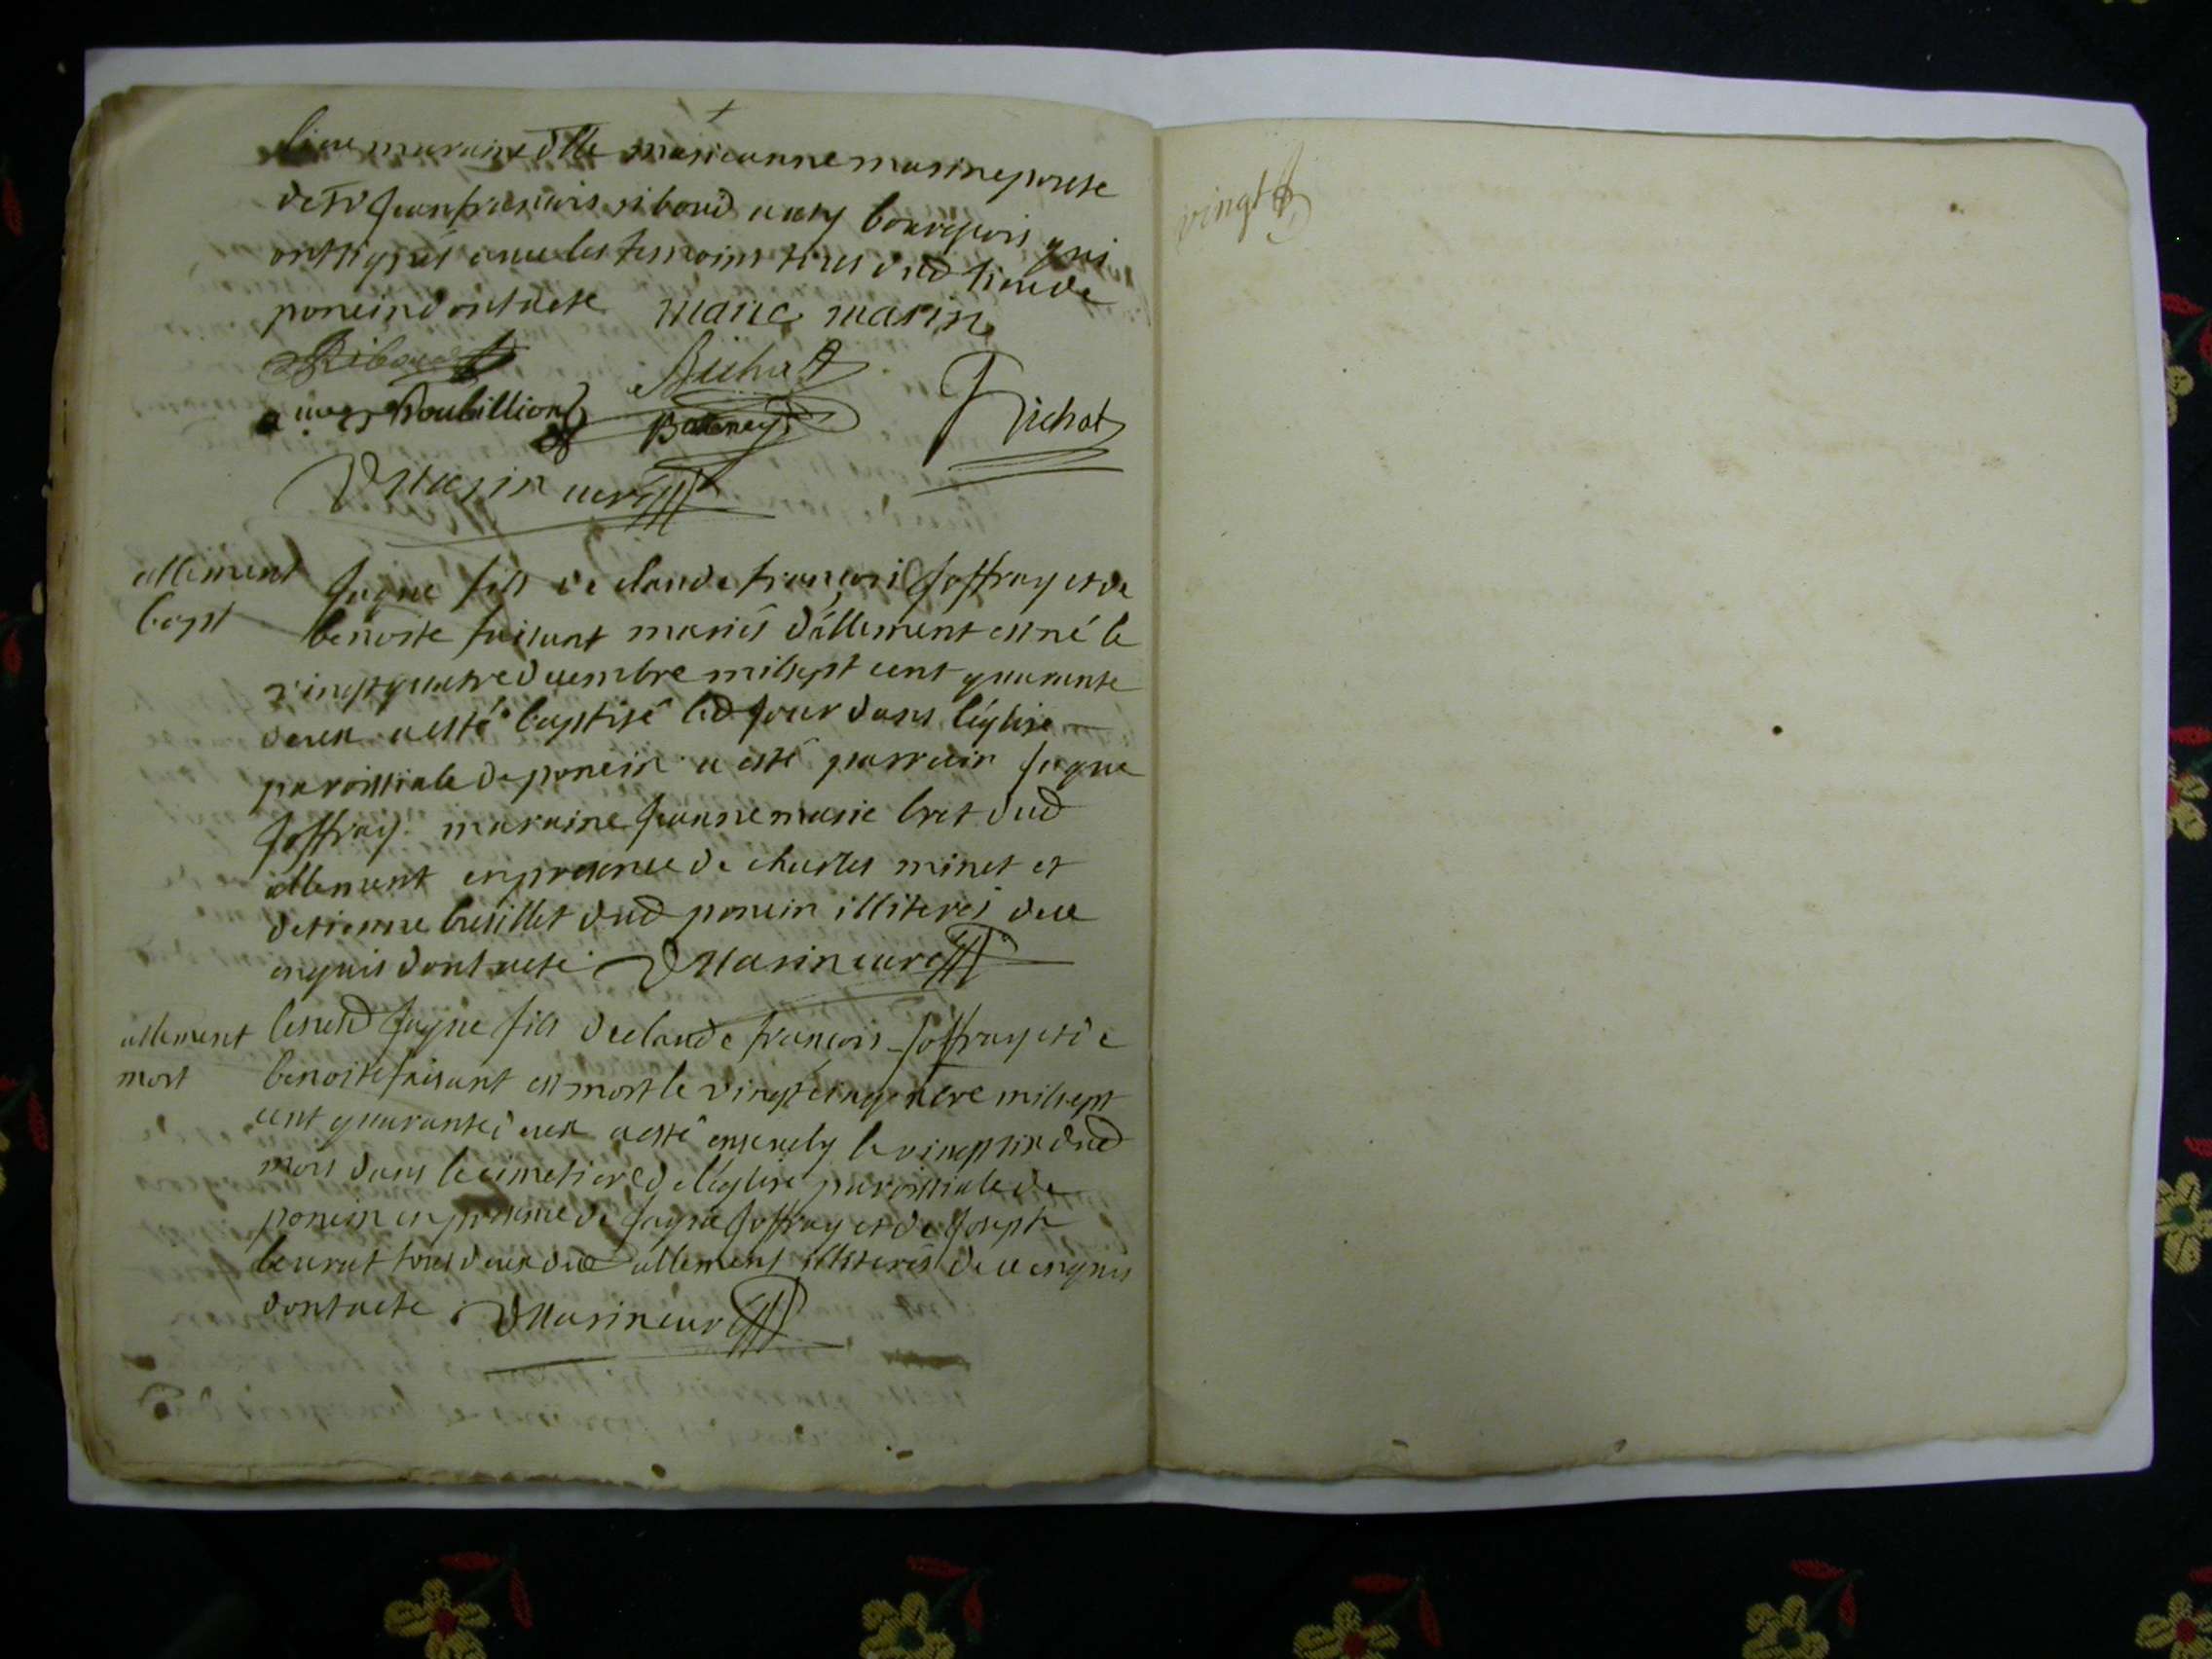 maraine dlle marieanne marine
de sr jean francois riboud bourgeois qui
ont signés avec les tesmoins tirés dud lieu de
poncin dont acte marie marin
Riboud Richat
Roubillion Richat
Marin curé
allement jaque fils de claude françois joffray et de
bapt benoite faisant mariés dállement est né le
vingt quatre decembre mil sept cent quarante
deux a esté baptisé led jour dans léglise
paroissiale de poncin a esté parrain jaque
joffray maraine jeanne marie bret dud
allement en presence de charles minet et
detienne busillet dud poncin illiterés de ce
enquis dont acte Marin curé
allement le susd jaque fils de claude françois joffray et de
mort benoite faisant est mort le vingt cinq xbre mil sept
cent quarante deux a esté ensevely le vingt six dud
mois dans le cimetiere de léglise paroissiale de
poncin en presence de jaque joffray et de joseph
tous deux dud allement illiterés de ce enquis
dont acte Marin curé
vingt